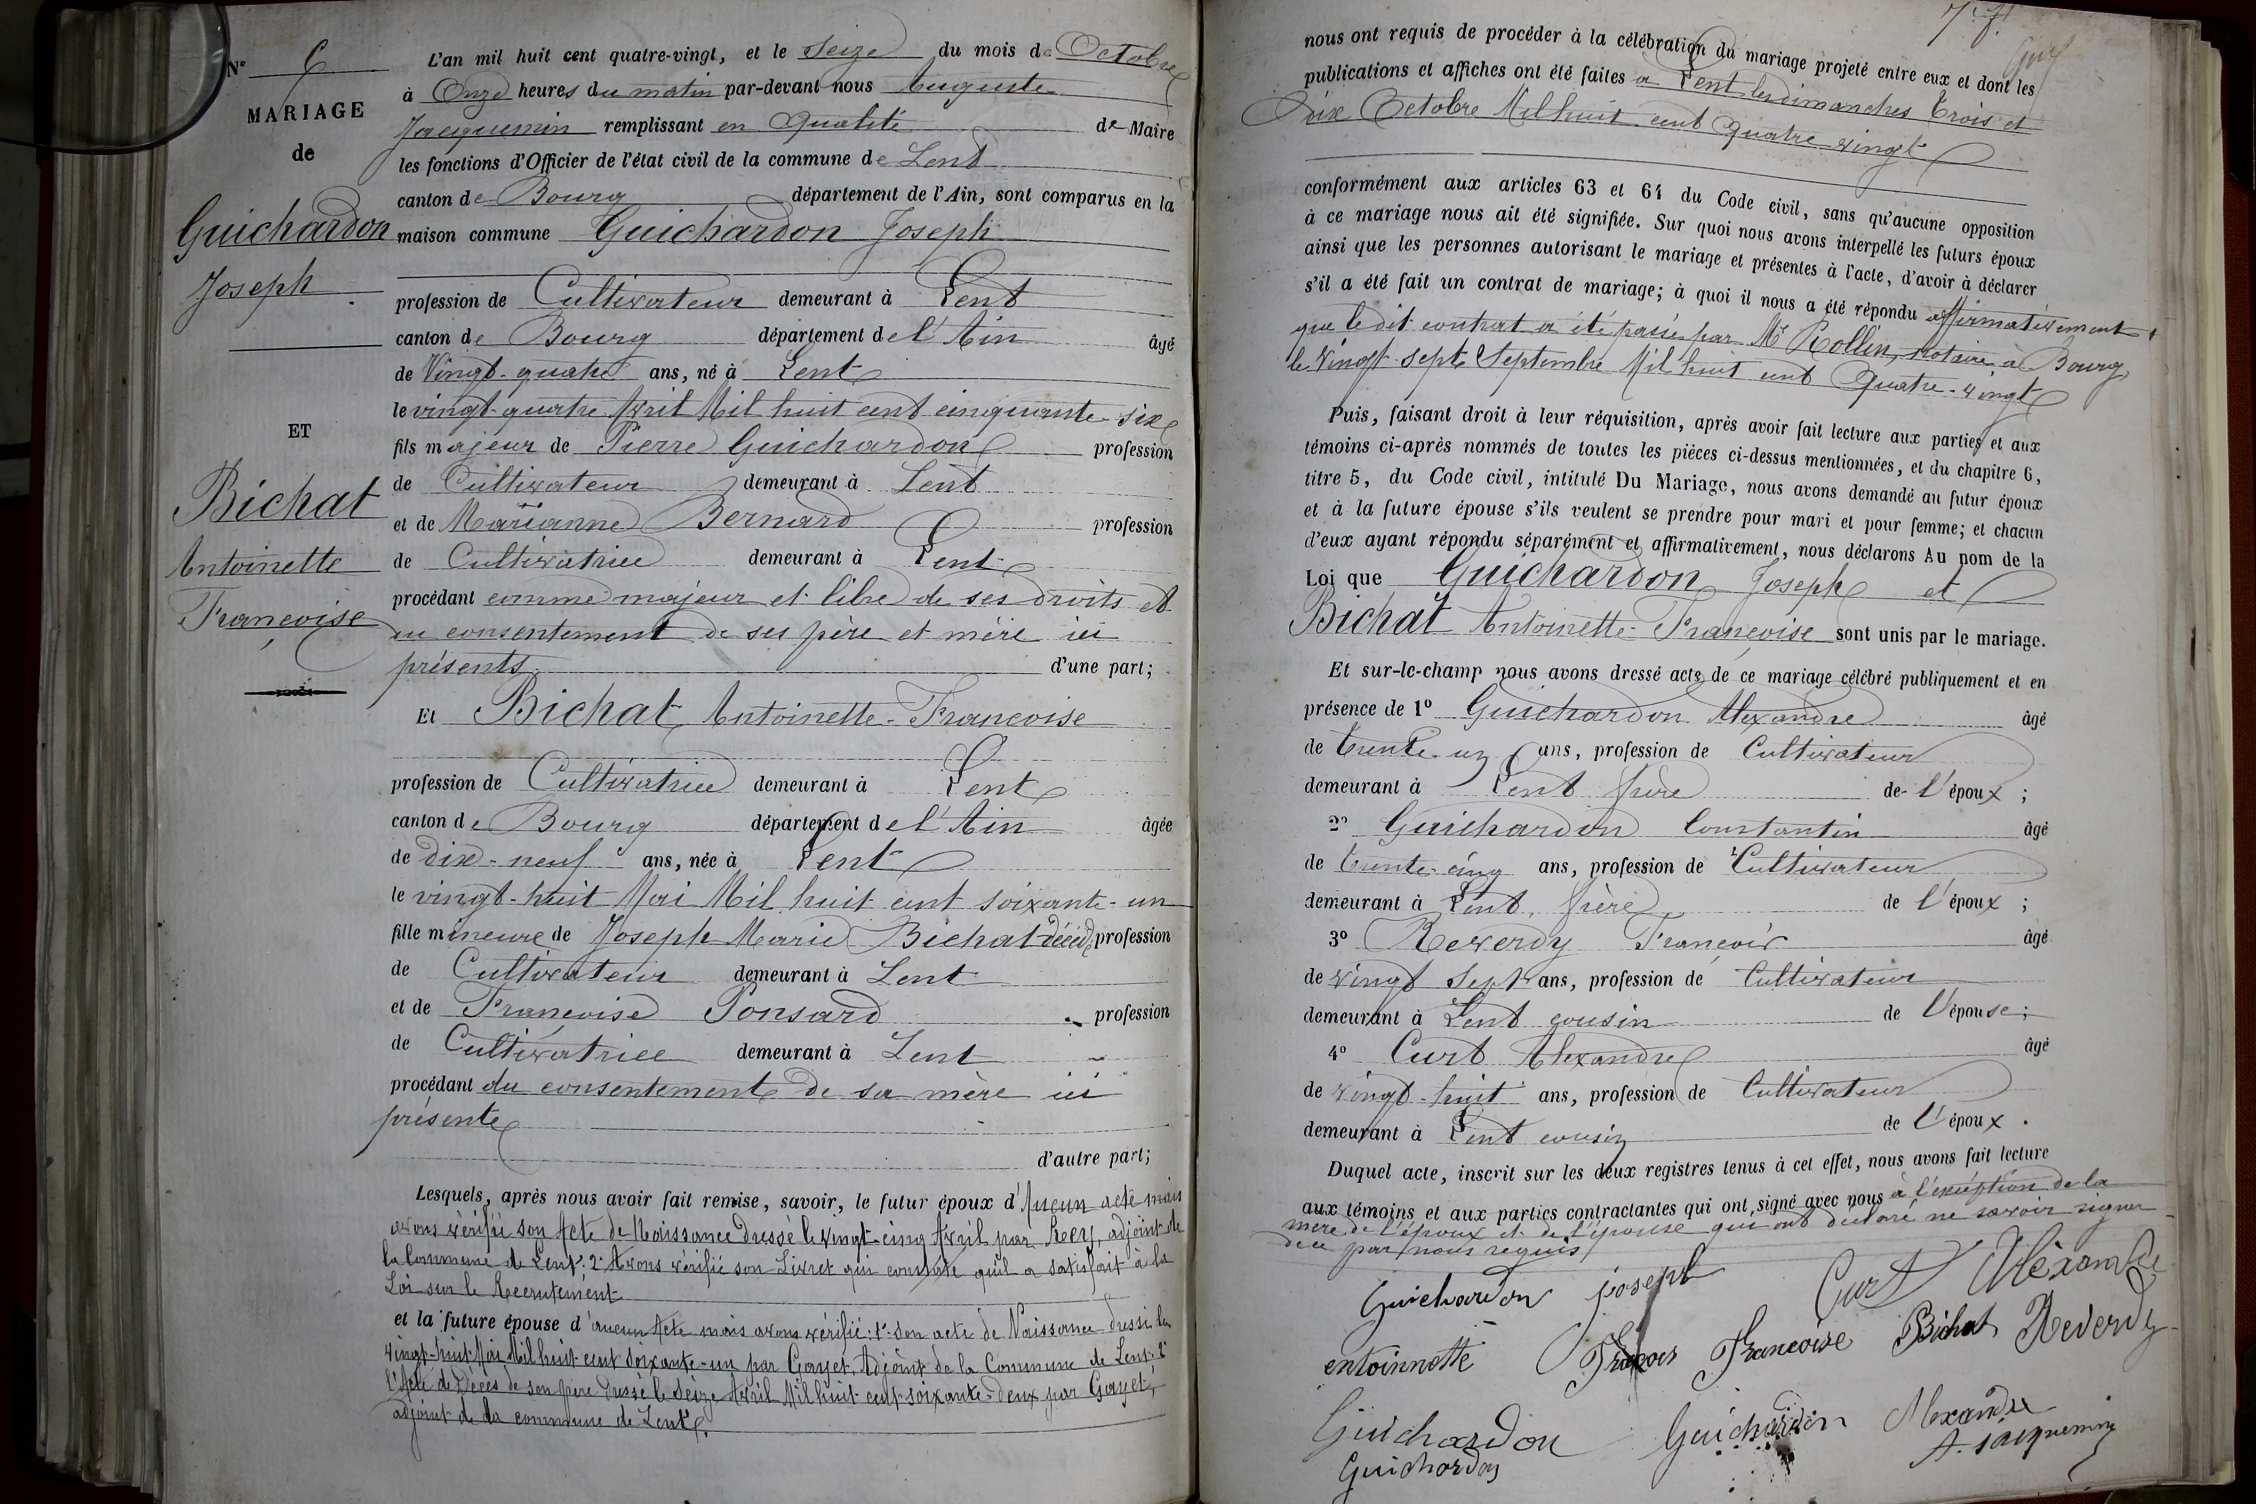 N° 6
MARIAGE
de
Guichardon
Joseph
ET
Bichat
Antoinette
Françoise
L'an mil huit cent quatre-vingt, et le Seize du mois de Octobre
à Onze heures du matin par-devant nous Auguste
Jacquemin remplissant en Qualité de Maire
les fonctions d'Officier de l'état civil de la commune de Lent
canton de Bourg département de l'Ain, sont comparus en la
maison commune Guichardon Joseph
profession de Cultivateur demeurant à Lent
canton de Bourg département de l'Ain âgé
de Vingt-quatre ans, né à Lent
le vingt-quatre Avril Mil huit cent cinquante-six
fils majeur de Pierre Guichardon profession
de Cultivateur demeurant à Lent
et de Marianne Bernard profession
de Cultivatrice demeurant à Lent
procédant comme majeur et libre de ses droits et
du consentement de ses père et mère ici
présents d'une part;
Et Bichat Antoinette-Françoise
profession de Cultivatrice demeurant à Lent
canton de Bourg département de l'Ain âgée
de dix-neuf ans, née à Lent
le vingt-huit Mai Mil huit cent soixante-un
fille mineure de Joseph Marie Bichat décédé profession
de Cultivateur demeurant à Lent
et de Françoise Ponsard profession
de Cultivatrice demeurant à Lent
procédant du consentement de sa mère ici
présente
d'autre part;
Lesquels, après nous avoir fait remise, savoir, le futur époux d'Aucun acte mais
avons vérifié son Acte de Naissance dressé le vingt-cinq Avril par Rey, adjoint de
la Commune de Lent: 2° Avons vérifié son Livret qui constate qu'il a satisfait à la
Loi sur le Recrutement
et la future épouse d'aucun Acte mais avons vérifié: 1° son acte de Naissance dressé le
vingt-huit Mai Mil huit cent soixante-un par Gayet, Adjoint de la Commune de Lent; 2°
l'Acte de Décès de son père dressé le Seize Avril Mil huit cent soixante-deux par Gayet,
adjoint de la commune de Lent.
nous ont requis de procéder à la célébration du mariage projeté entre eux et dont les
publications et affiches ont été faites à Lent les dimanches Trois et
Dix Octobre Mil huit cent Quatre vingt
conformément aux articles 63 et 64 du Code civil, sans qu'aucune opposition
à ce mariage nous ait été signifiée. Sur quoi nous avons interpellé les futurs époux
ainsi que les personnes autorisant le mariage et présentes à l'acte, d'avoir à déclarer
s'il a été fait un contrat de mariage; à quoi il nous a été répondu affirmativement
que ledit contrat a été passé par Me Rollin, notaire à Bourg,
le Vingt-sept Septembre Mil huit cent Quatre-vingt
Puis, faisant droit à leur réquisition, après avoir fait lecture aux parties et aux
témoins ci-après nommés de toutes les pièces ci-dessus mentionnées, et du chapitre 6,
titre 5, du Code civil, intitulé Du Mariage, nous avons demandé au futur époux
et à la future épouse s'ils veulent se prendre pour mari et pour femme; et chacun
d'eux ayant répondu séparément et affirmativement, nous déclarons Au nom de la
Loi que Guichardon Joseph et
Bichat Antoinette-Françoise sont unis par le mariage.
Et sur-le-champ nous avons dressé acte de ce mariage célébré publiquement et en
présence de 1° Guichardon Alexandre âgé
de trente-un ans, profession de Cultivateur
demeurant à Lent frère de l'époux;
2° Guichardon Constantin âgé
de trente-cinq ans, profession de Cultivateur
demeurant à Lent, frère de l'époux;
3° Reverdy François âgé
de vingt sept ans, profession de Cultivateur
demeurant à Lent cousin de l'épouse;
4° Curt Alexandre âgé
de vingt-huit ans, profession de Cultivateur
demeurant à Lent cousin de l'époux.
Duquel acte, inscrit sur les deux registres tenus à cet effet, nous avons fait lecture
aux témoins et aux parties contractantes qui ont signé avec nous à l'exception de la
mère de l'époux et de l'épouse qui ont déclaré ne savoir signer
de ce par nous requis
Guichardon joseph Curt Alexandre
entoinnette François Francoise Bichat Reverdy
Guichardon Guichardon Alexandre
Guichardon A. Jacquemin